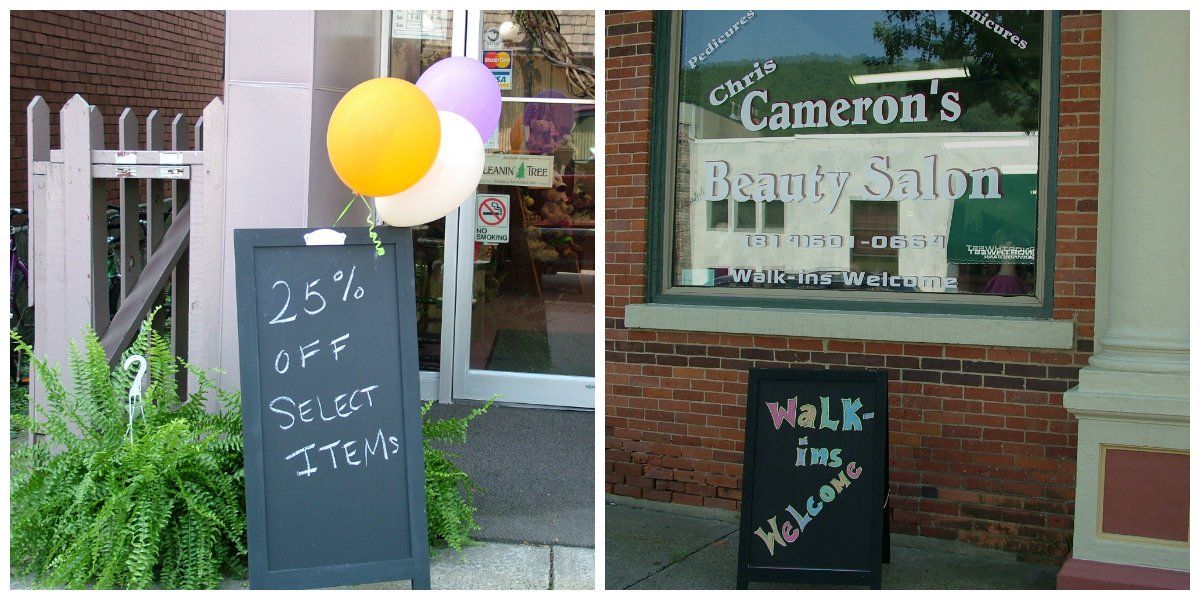 MasterCard
VISA
LEANIN' TREE
NO
SMOKING
25%
OFF
SELECT
ITEMS
Pedicures
anicures
Chris
Cameron's
Beauty Salon
(814)601-0664
Walk-ins Welcome
WaLK-
ins
WeLcoME